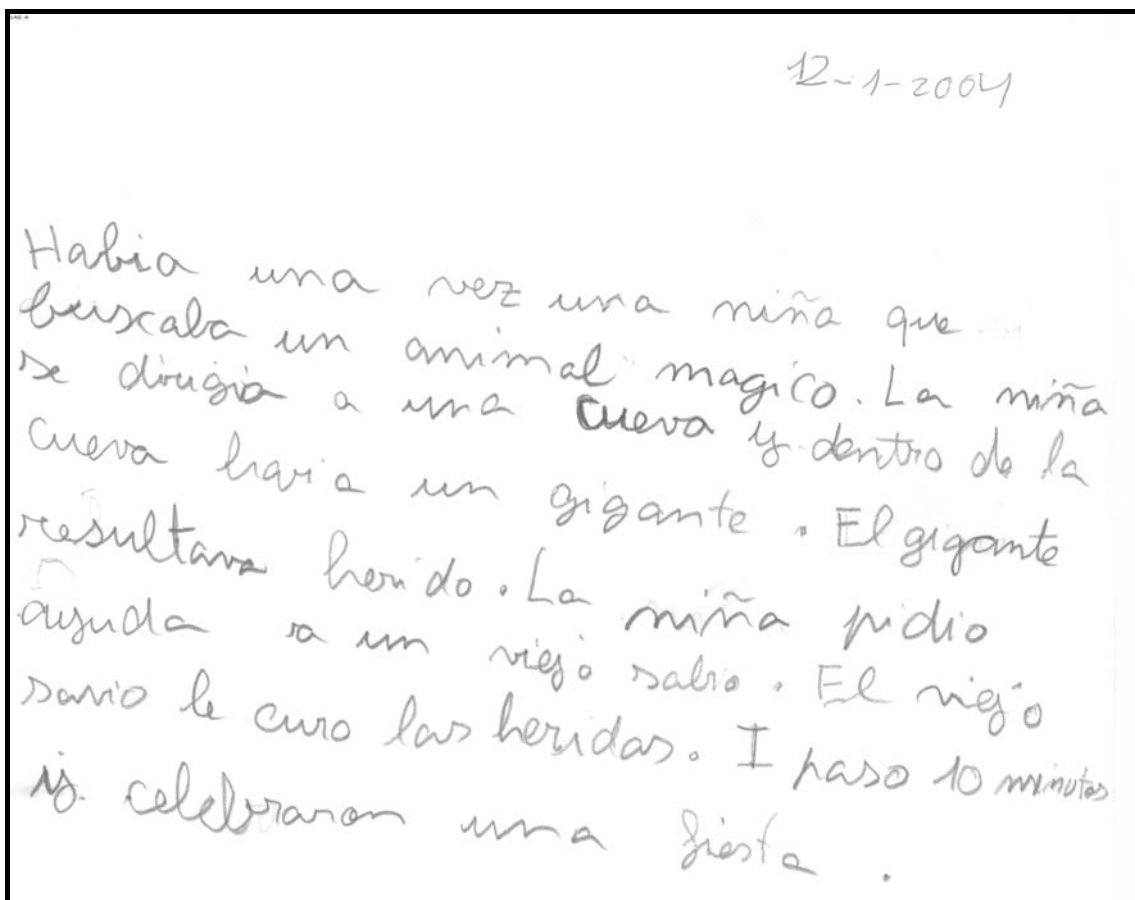 12-1-2004
Habia una vez una niña que
buscaba un animal magico. La niña
se dirigia a una cueva y dentro de la
cueva havia un gigante. El gigante
resultava herido. La niña pidio
ayuda a un viejo sabio. El viejo
savio le curo las heridas. I paso 10 minutos
y celebraron una fiesta.